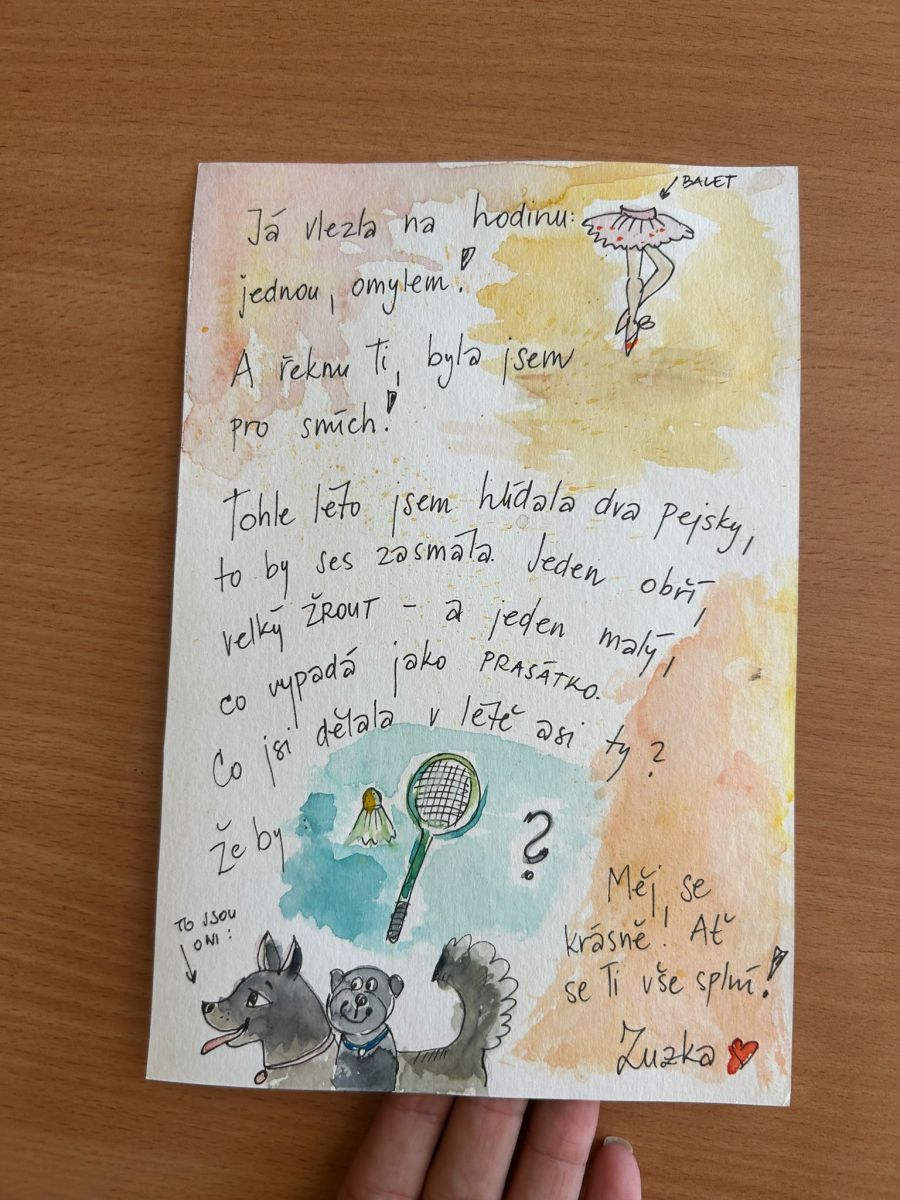 BALET
Já vlezla na hodinu:
jednou, omylem!
A řeknu Ti, byla jsem
pro smích!
Tohle léto jsem hlídala dva pejsky,
to by ses zasmála. Jeden obří,
velký ŽROUT – a jeden malý,
co vypadá jako PRASÁTKO.
Co jsi dělala v létě asi ty?
Že by
?
TO JSOU
ONI:
Měj se
krásně! Ať
se Ti vše splní!
Zuzka